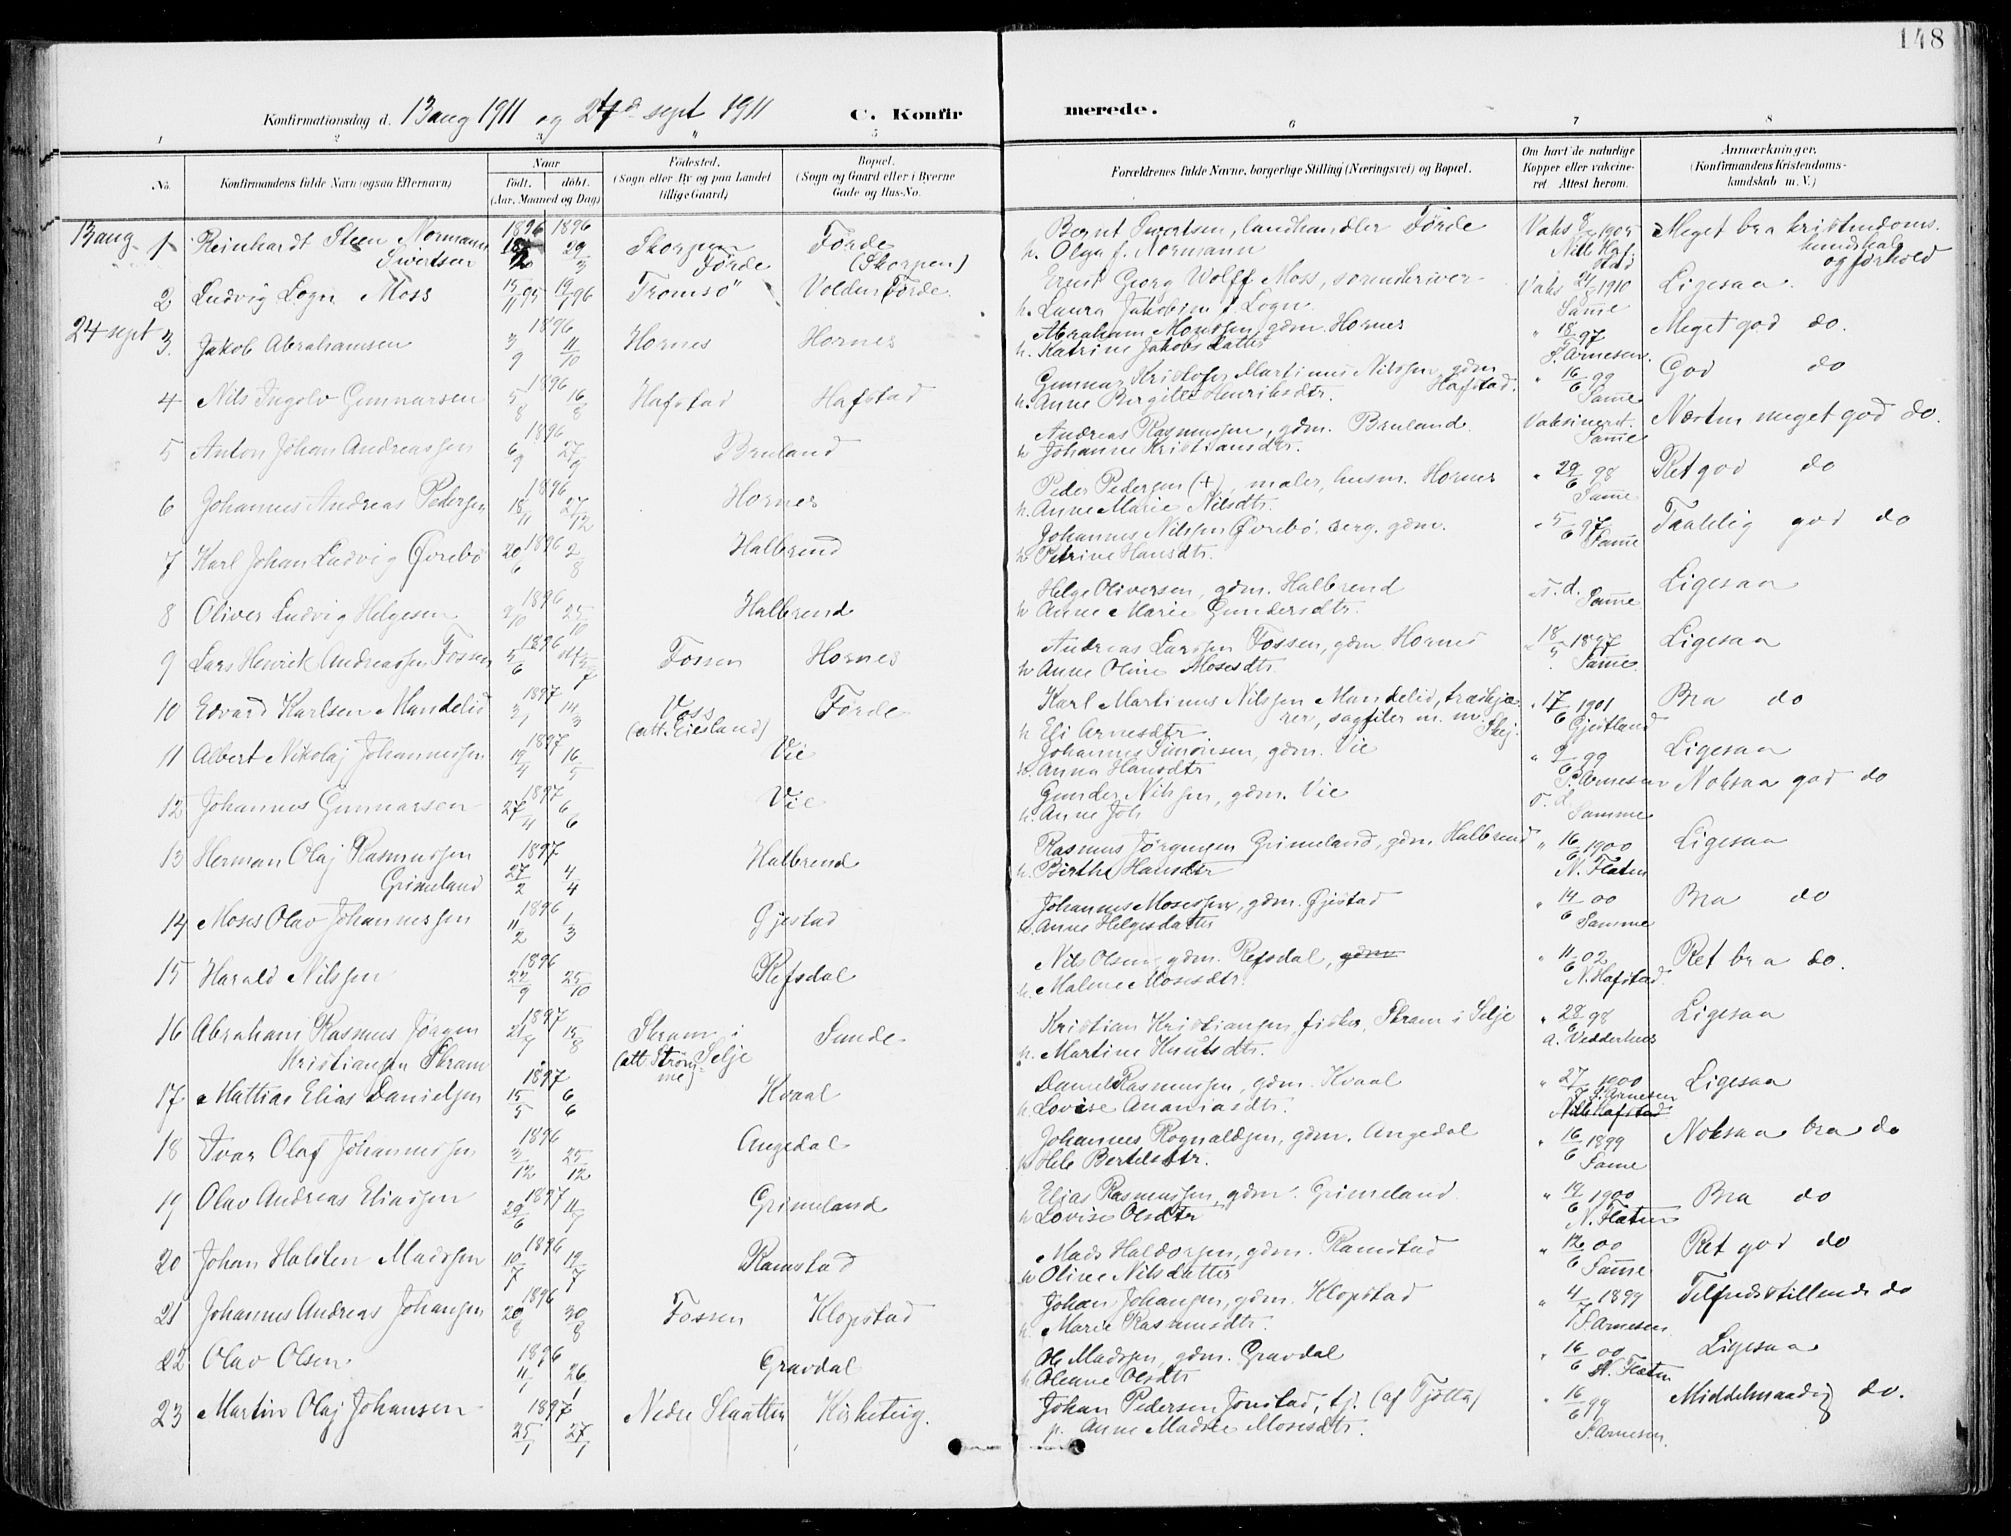 148
Konfirmationsdag d. 13 aug 1911 og 24de sept 1911 C. Konfirmerede.
1 2 3 4 5 6 7 8
No. Konfirmandens fulde Navn (ogsaa Efternavn) Naar født. døbt. (Aar, Maaned og Dag) Fødested. (Sogn eller By og paa Landet tillige Gaard) Bopæl. (Sogn og Gaard eller i Byerne Gade og Hus-No. Forældrenes fulde Navne, borgerlige Stilling (Næringsvei) og Bopæl. Om havt de naturlige Kopper eller vakcineret. Attest herom. Anmærkninger. (Konfirmandens Kristendomskundskab m. V.)
13 aug 1 Reinhardt Steen Normann Sivertsen 1896 1896 29/3 Skorpen Førde Førde (Skorpen) Bernt Sivertsen, landhandler Førde h. Olga f. Normann Vaks 1905 Meget bra kristendomskundskab og forhold
2 Ludvig Logn Moss 15/11 95 19/1 96 Tromsø Volden Førde Ernst Georg Wolff Moss, sorenskriver h. Laura Jakobine f. Logn Vaks 1910 Samme Ligesaa
24 sept 3. Jakob Abrahamsen 1896 3/9 11/10 Hornes Hornes Abraham Monssen, gdm. Hornes h. Katrine Jakobsdatter " 18/ 97 S. Arnesen. Meget god do.
4 Nils Ingolv Gunnarsen 1896 5/8 16/8 Hafstad Hafstad Gunnar Kristofer Martinus Nilssen, gdm Hafstad. h. Anne Birgitte Henriksdtr. " 16/6 99 Samme God do
5 Anton Johan Andreassen 1896 6/9 27/9 Bruland Andreas Rasmussen, gdm. Bruland h Johanne Kristiansdtr. Vaksinert. Samme Næsten meget god do.
6 Johannes Andreas Pedersen 1896 18/11 27/12 Hornes Peder Pedersen (+), maler, husm. Hornes h. Anne Marie Nilsdtr. " 29/6 98 Samme Ret god do
7 Karl Johan Ludvig Øvrebø 1896 20/6 2/8 Halbrend Johannes Nilssen Øvrebø, serg. gdm. h Petrine Hansdtr. " 5/6 97 Samme Taalelig god do
8 Oliver Ludvig Helgesen 1896 2/10 25/10 Halbrend Helge Oliversen, gdm. Halbrend h Anne Marie Gundersdtr. " s. d. Samme Ligesaa
9 Lars Henrik Andreassen Fossen 1896 5/6 Fossen Hornes Andreas Larssen Fossen, gdm Hornes h Anne Oline Mosesdtr. " 18/5 1897 Samme Ligesaa
10 Edvard Karlsen Mandelid 1897 3/1 14/3 Voss (att. Eiesland) Førde Karl Martinus Nilssen Mandelid, træskjærer, sagfiler m. m. Skej. h Eli Arnesdtr. " 17/6 1901 Gjestland Bra do
11 Albert Nikolaj Johannessen 1897 19/4 16/5 Vie Johannes Simonsen, gdm. Vie h. Anna Hansdtr " 9/6 99 S. Arnesen Ligesaa
12 Johannes Gunnarsen 1897 27/4 6/6 Vie Gunder Nilssen, gdm. Vie h. Anne Joh s. d. Samme Noksaa god do
13 Herman Olaj Rasmussen Grimeland 1897 27/2 4/4 Halbrend Rasmus Jørgensen Grimeland, gdm. Halbrend h. Birthe Hansdtr " 16/6 1900 N. Flaten Ligesaa
14 Moses Olav Johannessen 1896 11/2 1/3 Gjestad Johannes Mosessen, gdm. Gjestad h. Anne Helgesdatter " 14/6 00 Samme Bra do
15 Harald Nilssen 1896 22/9 25/10 Refsdal Nils Olsen, gdm. Refsdal, gdm h. Malene Mosesdtr. " 11/6 02 N. Hafstad. Ret bra do.
16 Abraham Rasmus Jørgen Kristiansen Skram 1897 21/7 15/8 Skram i Selje (att. Strømme) Sunde Kristian Kristiansen, fisker, Skram i Selje h. Martine Knutsdtr. " 28/6 98 a. Vedderhus Ligesaa
17 Mattias Elias Danielsen 1897 15/5 6/6 Kvaal Daniel Rasmussen, gdm. Kvaal h. Lovise Ananiasdtr. " 27/7 1900 S. Arnesen Nils Hafstad Ligesaa
18 Ivar Olaf Johannessen 1896 3/12 25/12 Angedal Johannes Rognaldsen, gdm. Angedal h Hele Bertelsdtr. " 16/6 1899 Samme Noksaa bra do
19 Olav Andreas Eliassen 1897 29/6 11/7 Grimeland Elias Rasmussen, gdm. Grimeland h Lovise Olsdtr " 19/6 1900 N. Flaten Bra do
20 Johan Halsten Madssen 1896 10/7 19/7 Ramstad Mads Haldorsen, gdm. Ramstad h Oline Nilsdatter " 12/6 00 Samme Ret god do
21 Johannes Andreas Johansen 1896 20/8 30/8 Fossen Klopstad Johan Johansen, gdm. Klopstad h. Marie Rasmusdtr. " 4/7 1899 S. Arnesen Tilfredsstillende do
22 Olav Olsen 1896 11/1 26/1 Gravdal Ole Madssen, gdm. Gravdal h. Oleane Olsdtr " 16/6 00 N. Flaten Ligesaa
23 Martin Olaj Johansen 1897 25/1 27/1 Nedre Slaatten Kirketeig. Johan Pedersen Jonstad, tj. (af Tjøtta) p. Anne Madsie Mosesdtr. " 16/6 99 S. Arnesen. Middelmaadig do.